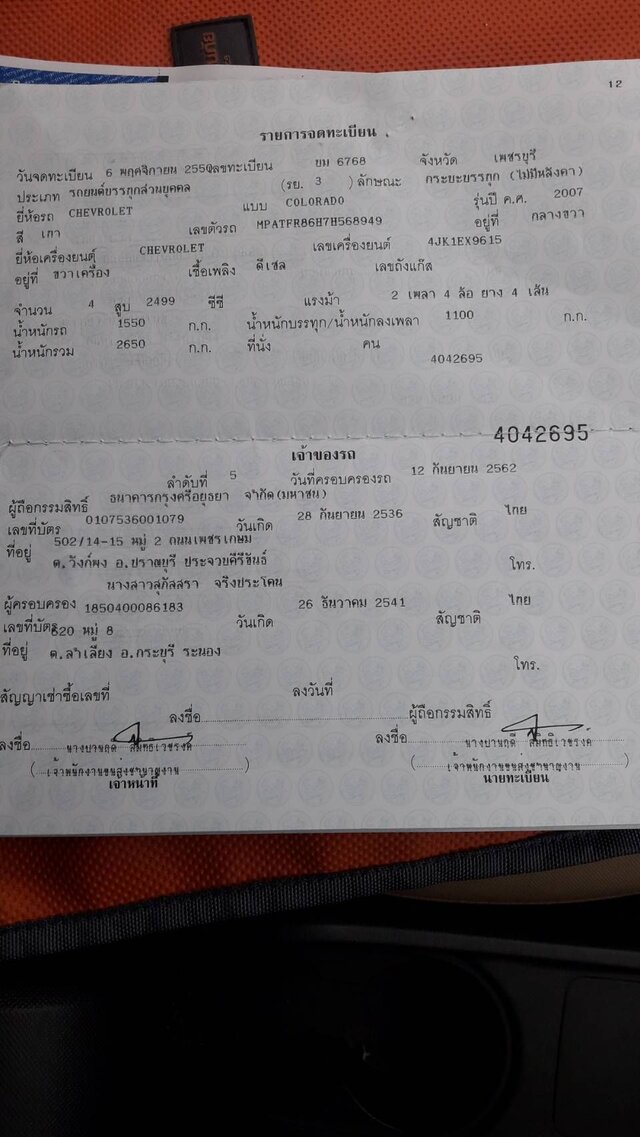 12
รายการจดทะเบียน
วันจดทะเบียน 6 พฤศจิกายน 2550 เลขทะเบียน บม 6768 จังหวัด เพชรบุรี
ประเภท รถยนต์บรรทุกส่วนบุคคล (รย. 3 ) ลักษณะ กระบะบรรทุก (ไม่มีหลังคา)
ยี่ห้อรถ CHEVROLET แบบ COLORADO รุ่นปี ค.ศ. 2007
สี เทา เลขตัวรถ MPATFR86H7H568949 อยู่ที่ กลางขวา
ยี่ห้อเครื่องยนต์ CHEVROLET เลขเครื่องยนต์ 4JK1EX9615
อยู่ที่ ขวาเครื่อง เชื้อเพลิง ดีเซล เลขถังแก๊ส
จำนวน 4 สูบ 2499 ซีซี แรงม้า 2 เพลา 4 ล้อ ยาง 4 เส้น
น้ำหนักรถ 1550 ก.ก. น้ำหนักบรรทุก/น้ำหนักลงเพลา 1100 ก.ก.
น้ำหนักรวม 2650 ก.ก. ที่นั่ง คน
4042695
4042695
เจ้าของรถ
ลำดับที่ 5 วันที่ครอบครองรถ 12 กันยายน 2562
ผู้ถือกรรมสิทธิ์ ธนาคารกรุงศรีอยุธยา จำกัด(มหาชน)
เลขที่บัตร 0107536001079 วันเกิด 28 กันยายน 2536 สัญชาติ ไทย
ที่อยู่ 502/14-15 หมู่ 2 ถนนเพชรเกษม
ต.วังก์พง อ.ปราณบุรี ประจวบคีรีขันธ์ โทร.
ผู้ครอบครอง นางสาวสุภัสสรา จริงประโคน
เลขที่บัตร 1850400086183 วันเกิด 26 ธันวาคม 2541 สัญชาติ ไทย
ที่อยู่ 620 หมู่ 8
ต.ลำเลียง อ.กระบุรี ระนอง โทร.
สัญญาเช่าซื้อเลขที่ ลงวันที่
ลงชื่อ ผู้ถือกรรมสิทธิ์
ลงชื่อ ลงชื่อ
(เจ้าพนักงานขนส่งชำนาญงาน) (เจ้าพนักงานขนส่งชำนาญงาน)
เจ้าหน้าที่ นายทะเบียน